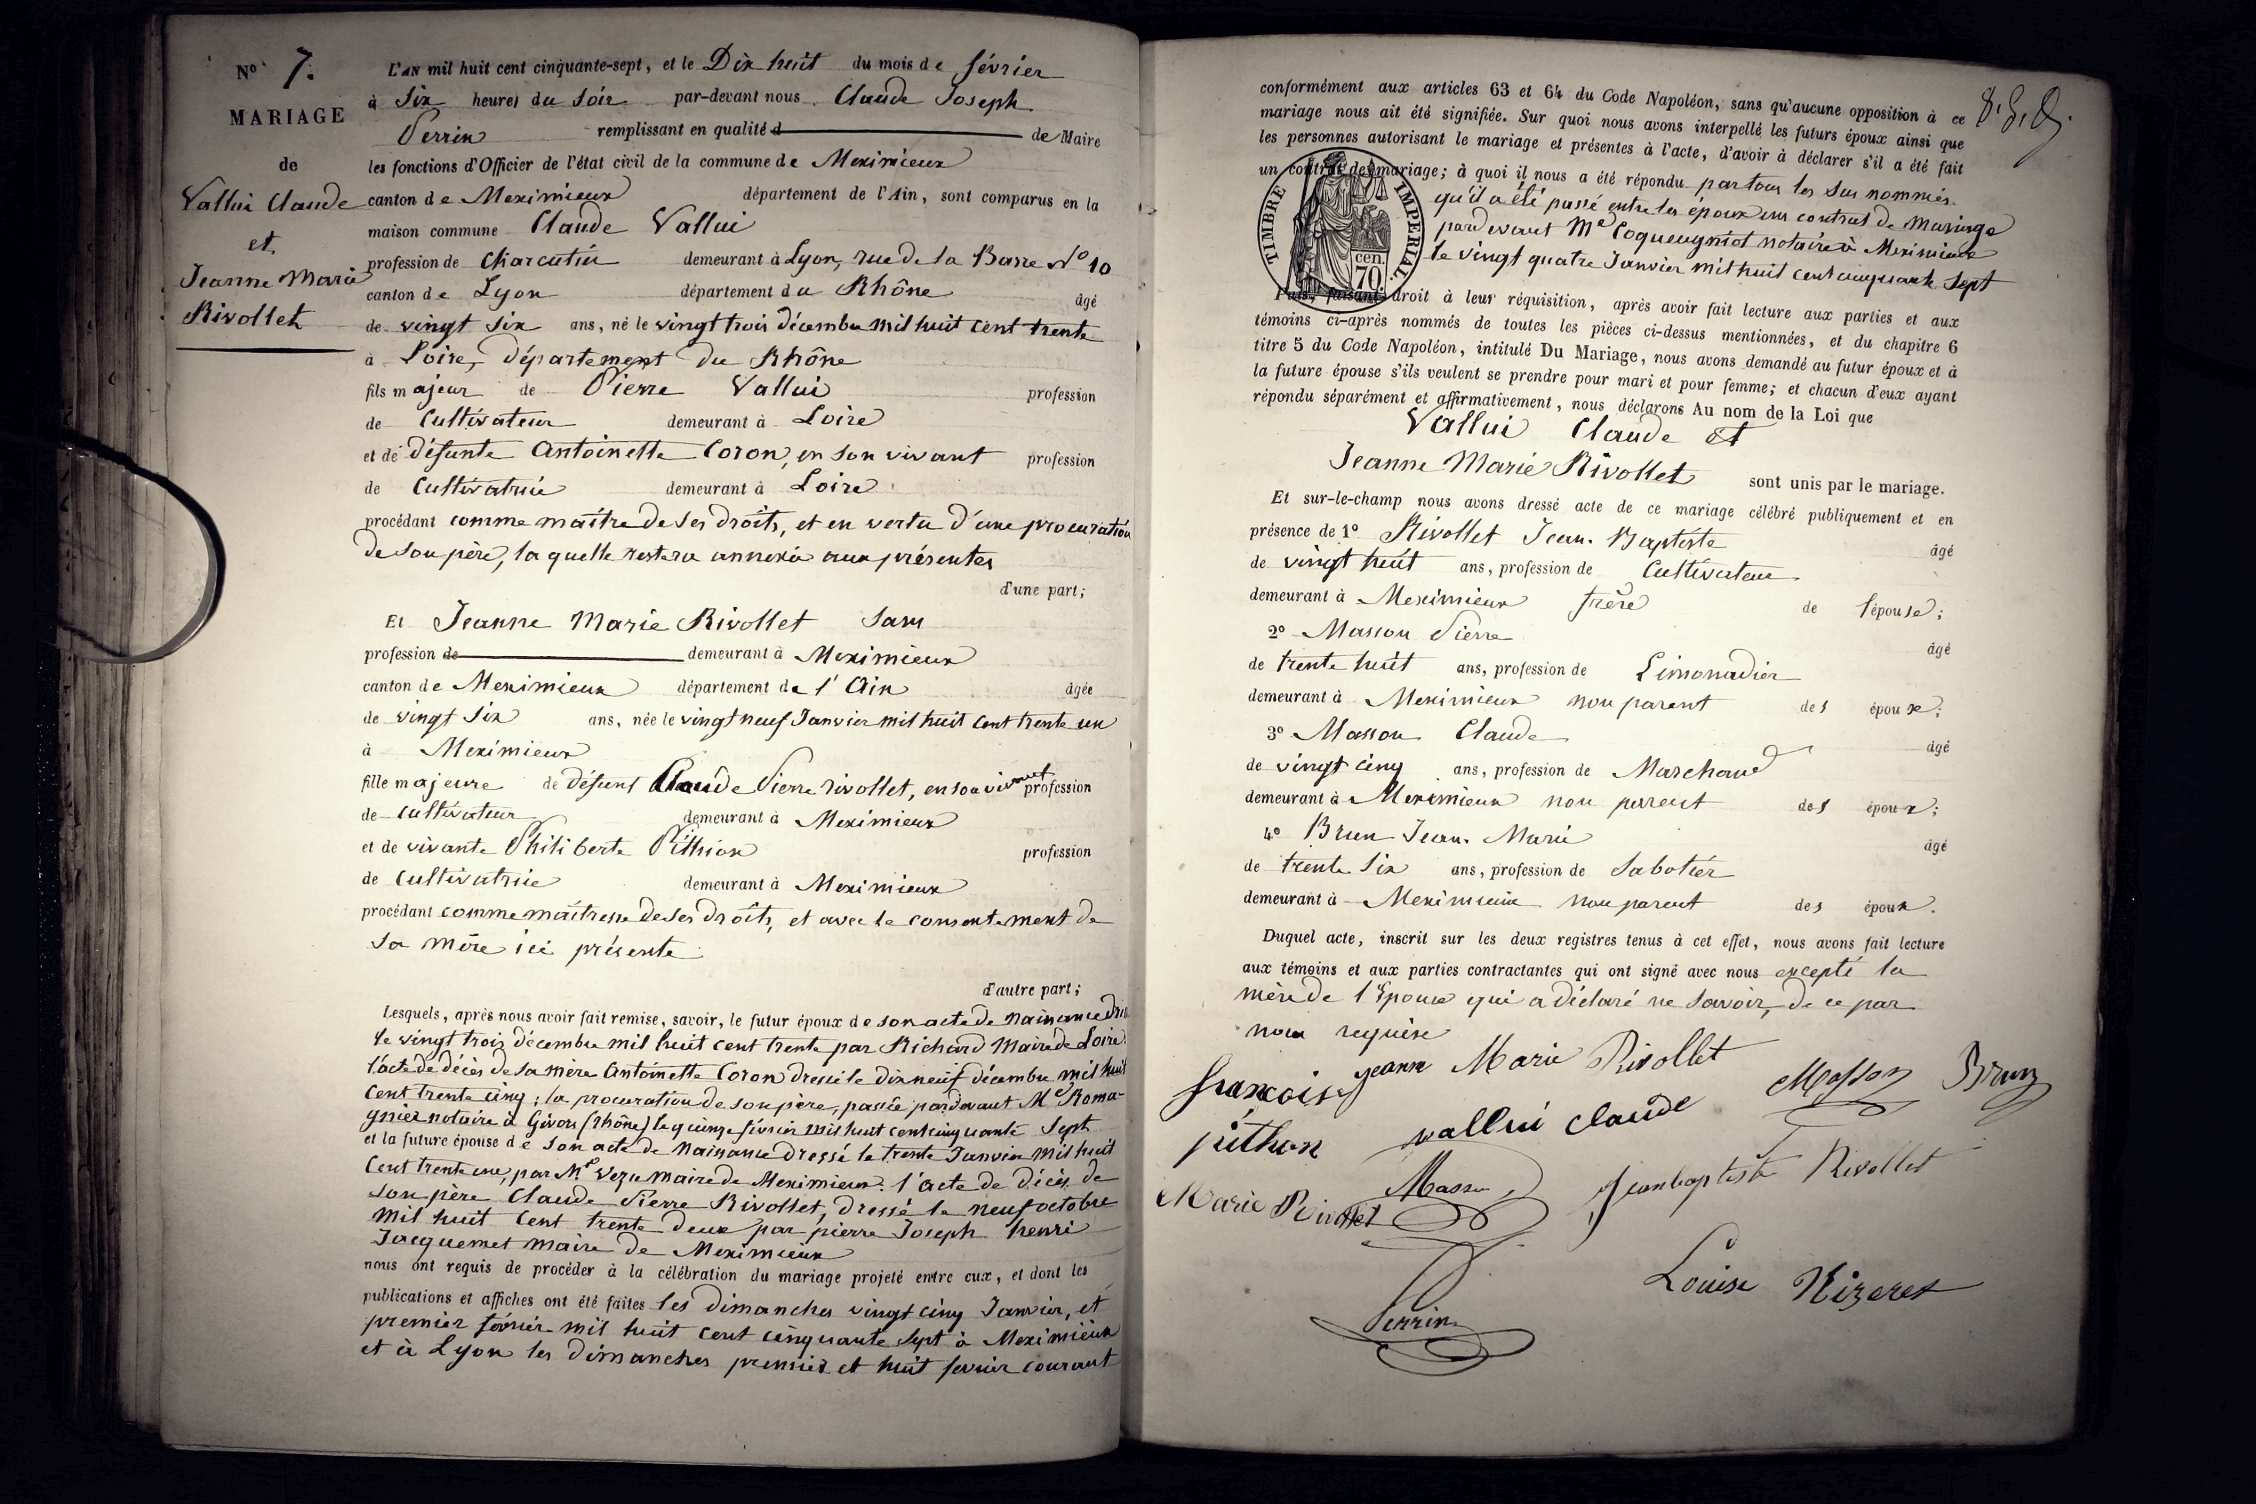 No 7.
MARIAGE
de
Vallui Claude
et
Jeanne Marie
Rivollet
L'AN mil huit cent cinquante-sept, et le Dix huit du mois de février
à Six heures du Soir par-devant nous Claude Joseph
Perrin remplissant en qualité d de Maire
les fonctions d'Officier de l'état civil de la commune de Meximieux
canton de Meximieux département de l'Ain, sont comparus en la
maison commune Claude Vallui
profession de Charcutier demeurant à Lyon, rue de la Barre No 10
canton de Lyon département du Rhône âgé
de vingt Six ans, né le vingt trois décembre mil huit cent trente
à Loire, département du Rhône
fils majeur de Pierre Vallui profession
de Cultivateur demeurant à Loire
et de défunte Antoinette Coron, en son vivant profession
de Cultivatrice demeurant à Loire
procédant comme maître de ses droits, et en vertu d'une procuration
de son père, laquelle restera annexée aux présentes
d'une part;
Et Jeanne Marie Rivollet Sans
profession de demeurant à Meximieux
canton de Meximieux département de l'Ain âgée
de vingt Six ans, née le vingt neuf Janvier mil huit cent trente un
à Meximieux
fille majeure de défunt Claude Pierre rivollet, en son vivant profession
de Cultivateur demeurant à Meximieux
et de vivante Philiberte Pithion profession
de Cultivatrice demeurant à Meximieux
procédant comme maîtresse de ses droits, et avec le consentement de
sa mère ici présente
d'autre part;
Lesquels, après nous avoir fait remise, savoir, le futur époux de son acte de naissance
le vingt trois décembre mil huit cent trente par Richard Maire de Loire.
l'acte de décès de sa mère Antoinette Coron dressé le dix neuf décembre mil huit
cent trente cinq; la procuration de son père, passée par devant Me Roma-
gnier notaire à Givors (Rhône) le quinze février mil huit cent cinquante Sept
et la future épouse de son acte de naissance dressé le trente Janvier mil huit
cent trente une, par Mr Vezu maire de Meximieux. l'acte de décès de
son père Claude Pierre Rivollet, dressé le neuf octobre
mil huit cent trente deux par pierre Joseph henri
Jacquemet maire de Meximieux
nous ont requis de procéder à la célébration du mariage projeté entre eux, et dont les
publications et affiches ont été faites les dimanches vingt cinq Janvier, et
premier février mil huit cent cinquante Sept à Meximieux
et à Lyon les dimanches premier et huit fevrier courant
conformément aux articles 63 et 64 du Code Napoléon, sans qu'aucune opposition à ce
mariage nous ait été signifiée. Sur quoi nous avons interpellé les futurs époux ainsi que
les personnes autorisant le mariage et présentes à l'acte, d'avoir à déclarer s'il a été fait
un contrat de mariage; à quoi il nous a été répondu par tous les sus nommés
qu'il a été passé entre les époux un contrat de Mariage
pardevant Me Coqueugniot notaire à Meximieux
le vingt quatre Janvier mil huit cent cinquante Sept
TIMBRE IMPERIAL.
70 cen.
Puis, faisant droit à leur réquisition, après avoir fait lecture aux parties et aux
témoins ci-après nommés de toutes les pièces ci-dessus mentionnées, et du chapitre 6
titre 5 du Code Napoléon, intitulé Du Mariage, nous avons demandé au futur époux et à
la future épouse s'ils veulent se prendre pour mari et pour femme; et chacun d'eux ayant
répondu séparément et affirmativement, nous déclarons Au nom de la Loi que
Vallui Claude et
Jeanne Marie Rivollet sont unis par le mariage.
Et sur-le-champ nous avons dressé acte de ce mariage célébré publiquement et en
présence de 1o Rivollet Jean-Baptiste âgé
de vingt huit ans, profession de Cultivateur
demeurant à Meximieux frère de l'épouse;
2o Masson Pierre âgé
de trente huit ans, profession de Limonadier
demeurant à Meximieux non parent des époux;
3o Masson Claude âgé
de vingt cinq ans, profession de Marchand
demeurant à Meximieux non parent des époux;
4o Brun Jean-Marie âgé
de trente Six ans, profession de Sabotier
demeurant à Meximieux non parent des époux.
Duquel acte, inscrit sur les deux registres tenus à cet effet, nous avons fait lecture
aux témoins et aux parties contractantes qui ont signé avec nous excepté la
mère de l'Epouse qui a déclaré ne savoir, de ce par
nous requise
jeanne Marie Rivollet
françoise pithon
vallui claude
Masson
Brun
Marie Rivollet
Masson
Jeanbaptiste Rivollet
Perrin
Louise Nizeret